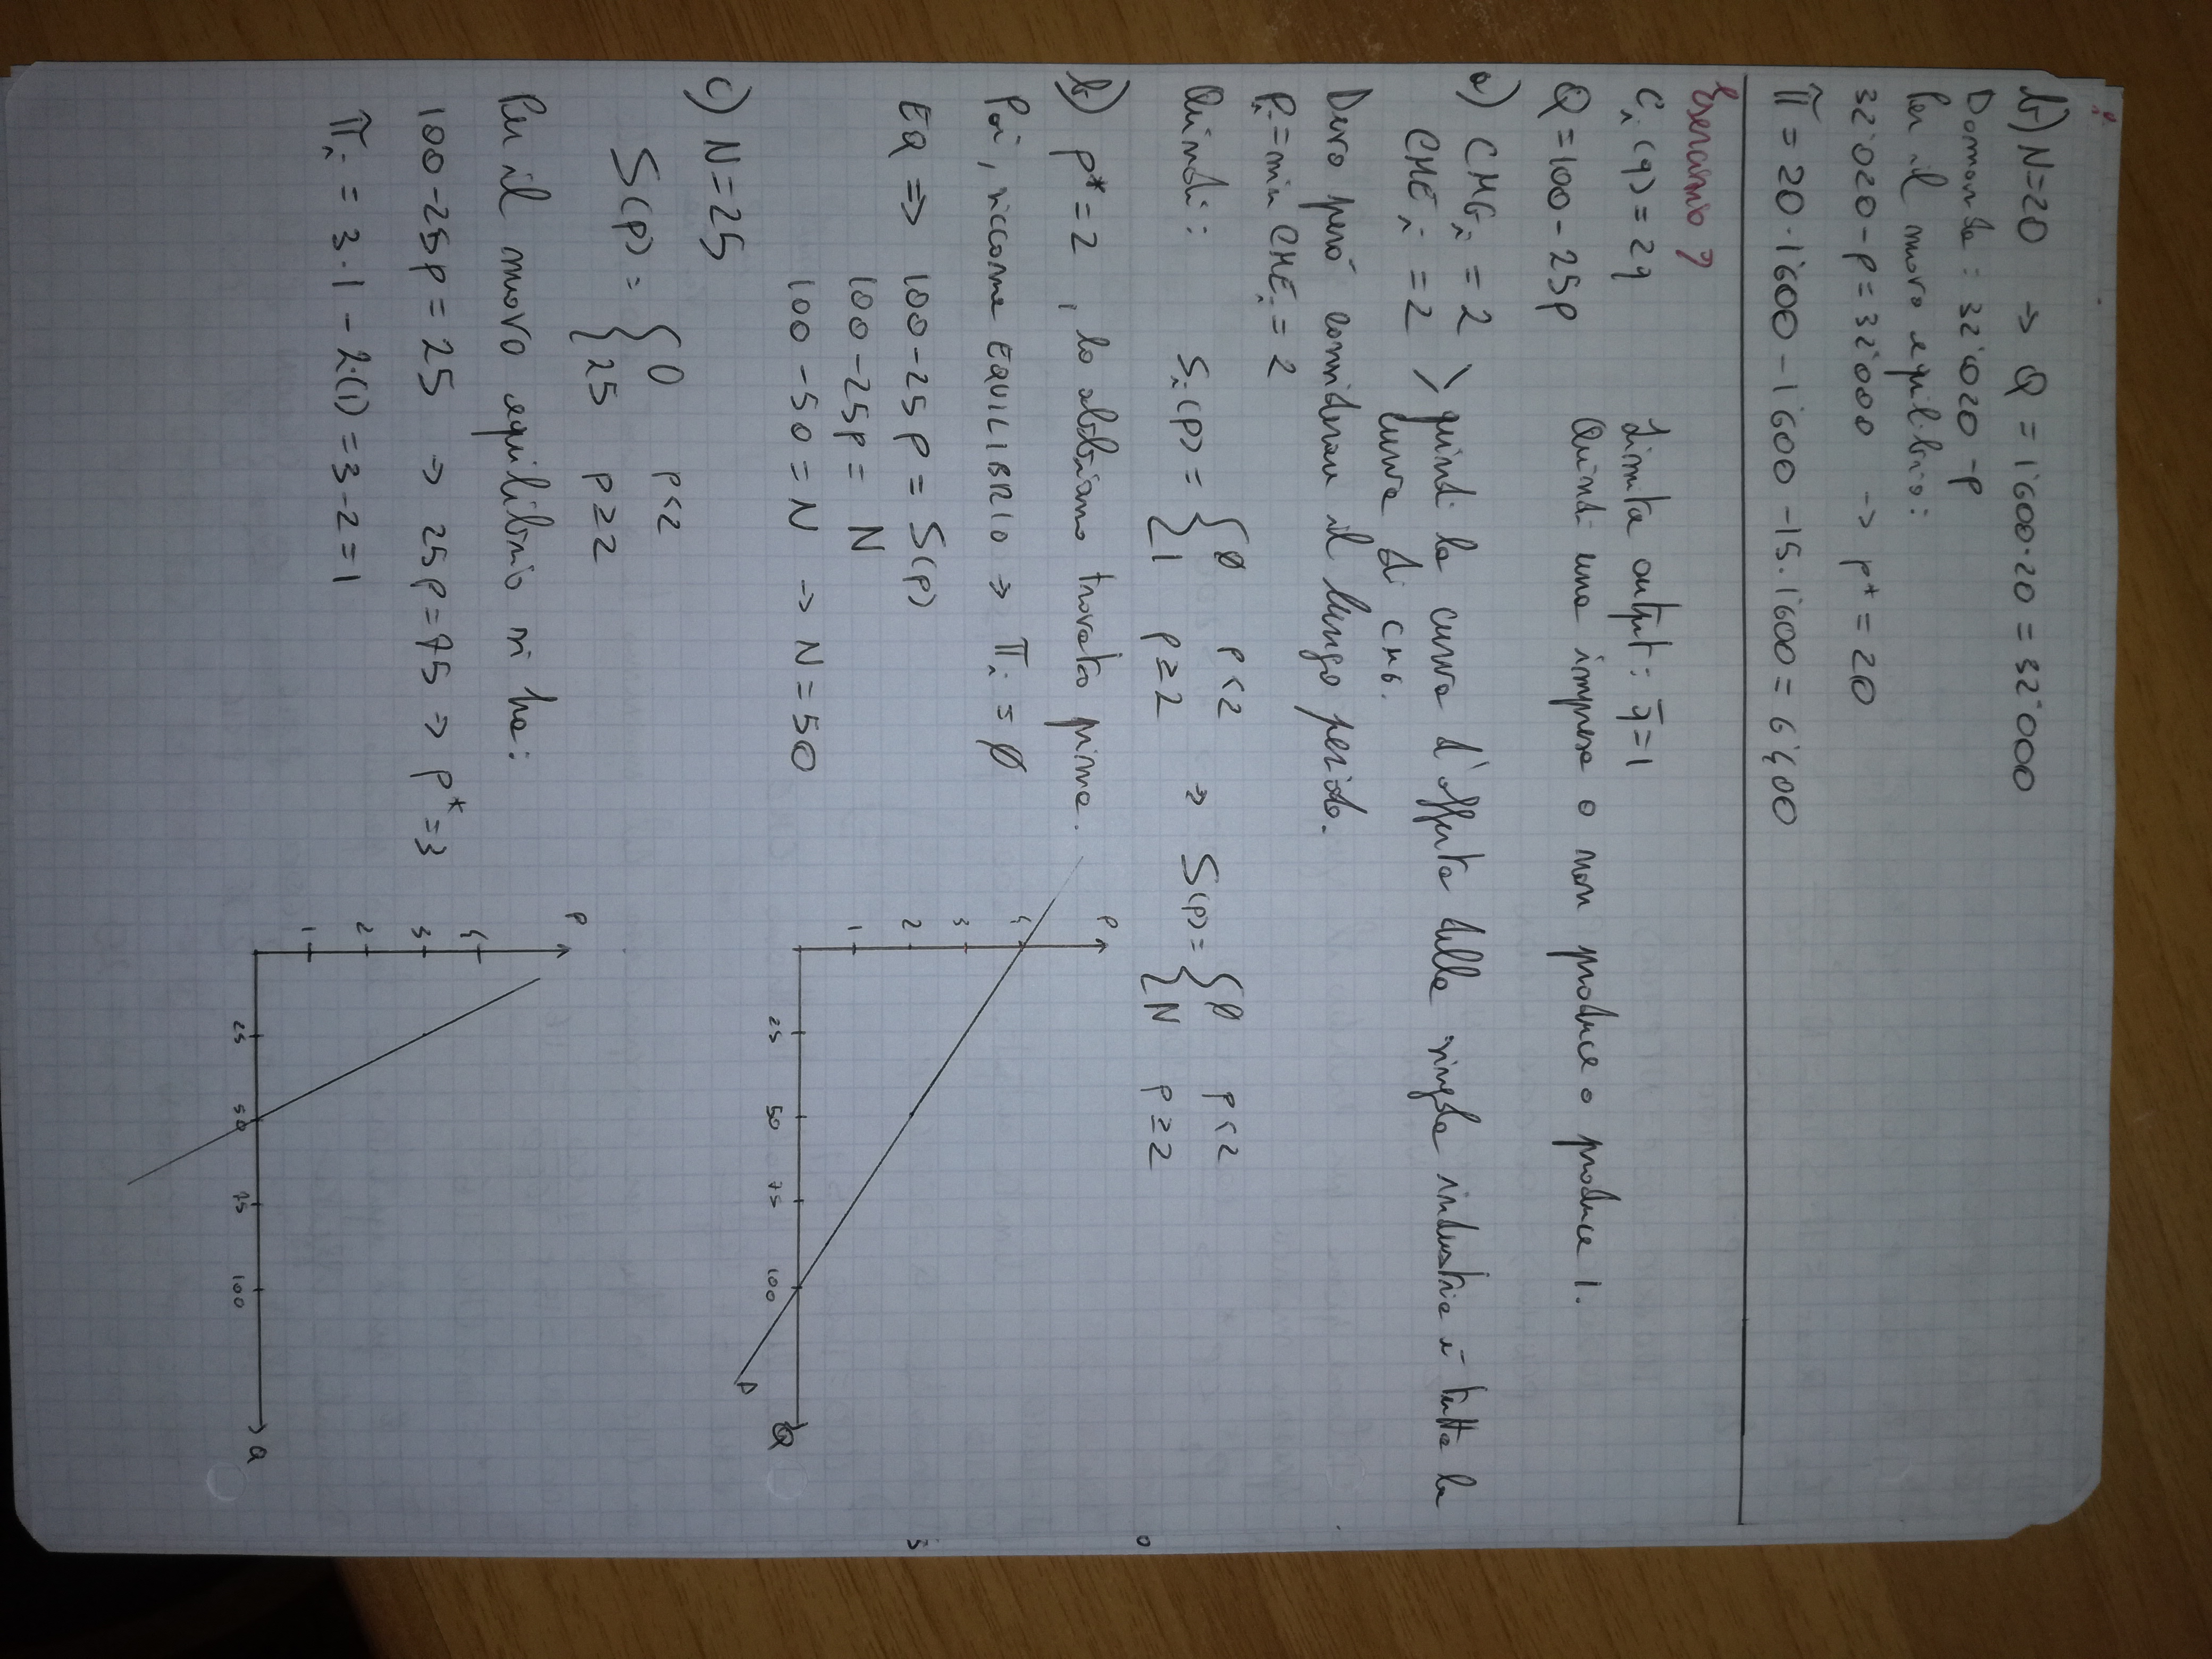 b) N=20 → Q = 1'600·20 = 32'000
Domanda: 32'020 -p
Per il nuovo equilibrio:
32'020-p=32'000 → p*=20
π̃ = 20·1'600-1'600-15·1'600=6'400
Esercizio 9
Cᵢ(q)=2q Limite output: q̄=1
Q=100-25p Quindi una impresa o non produce o produce 1.
a) CMGᵢ = 2
CMEᵢ = 2 > quindi la curva d'offerta della singola industria è tutta la
curva di CMG.
Devo però considerare il lungo periodo.
Pᵢ=min CMEᵢ= 2
Quindi: Sᵢ(p)= { ∅ p<2 ⇒ S(p)= { ∅ p<2
1 p≥2 N p≥2
b) p*=2, lo abbiamo trovato prima.
Poi, siccome EQUILIBRIO ⇒ πᵢ = ∅
EQ ⇒ 100-25p = S(p)
100-25p = N
100-50=N → N=50
P
4
3
2
1
25 50 75 100 Q
D
c) N=25
S(p)= { 0 p<2
25 p≥2
Per il nuovo equilibrio si ha:
100-25p=25 → 25p=75 ⇒ p*=3
π̃ᵢ = 3·1-2·(1)=3-2=1
P
4
3
2
1
25 50 75 100 Q